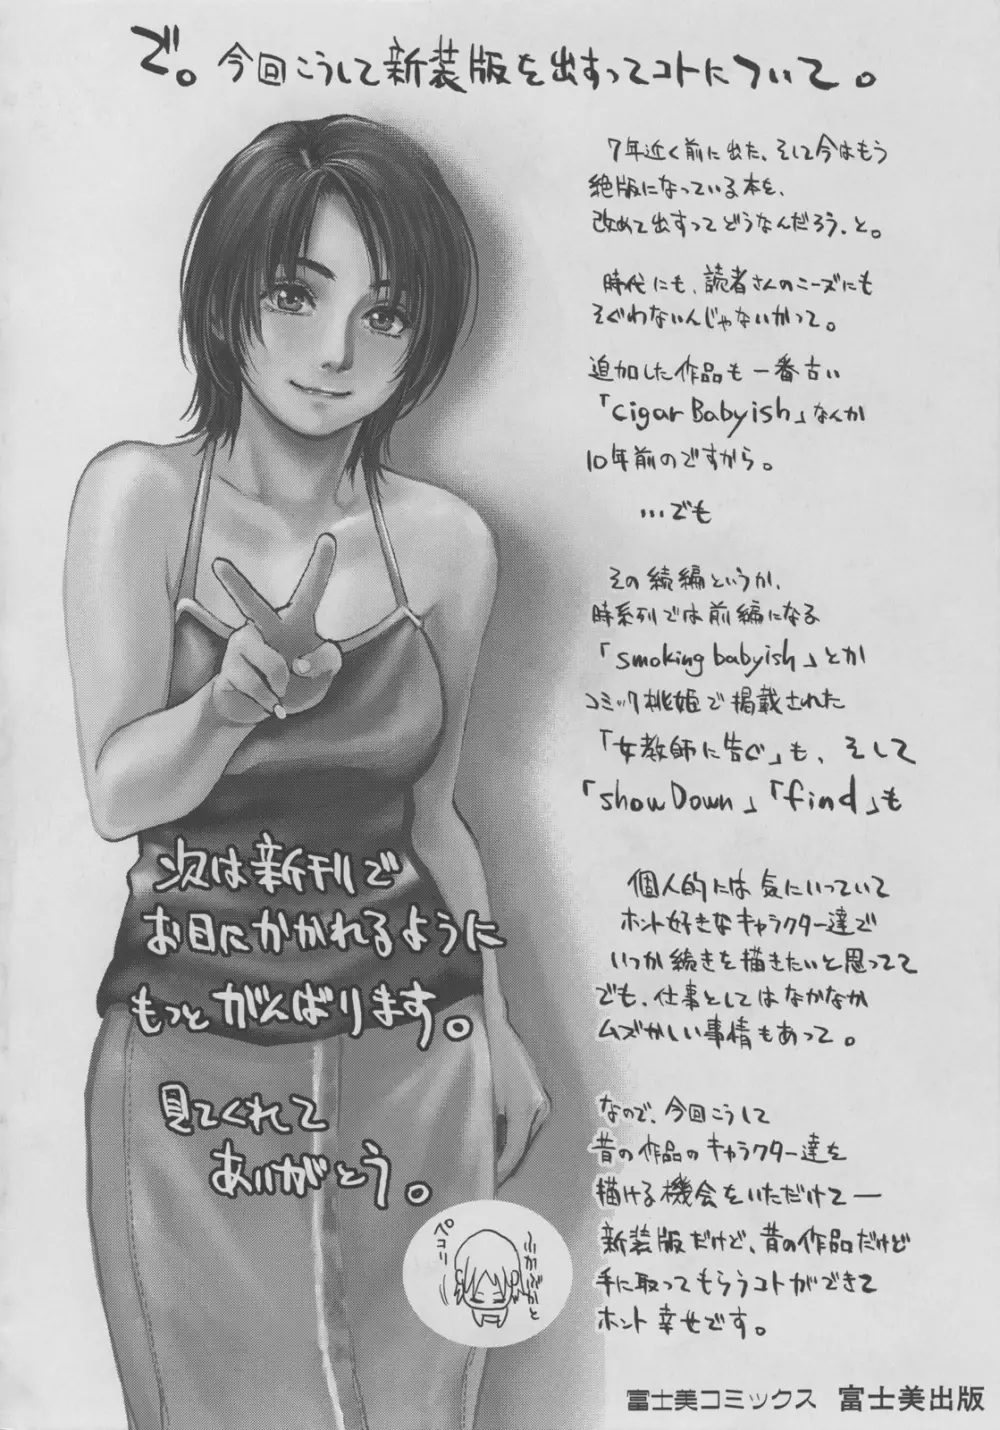 で。今回こうして新装版を出すってコトについて。
7年近く前に出た、そして今はもう
絶版になっている本を、
改めて出すってどうなんだろう、と。
時代にも、読者さんのニーズにも
そぐわないんじゃないかって。
追加した作品も一番古い
「cigar Babyish」なんか
10年前のですから。
…でも
その続編というか、
時系列では前編になる
「smoking babyish」とか
コミック桃姫で掲載された
「女教師に告ぐ」も、そして
「showDown」「find」も
個人的には気にいっていて
ホント好きなキャラクター達で
いつか続きを描きたいと思ってて
でも、仕事としてはなかなか
ムズかしい事情もあって。
なので、今回こうして
昔の作品のキャラクター達を
描ける機会をいただけて―
新装版だけど、昔の作品だけど
手に取ってもらうコトができて
ホント幸せです。
次は新刊で
お目にかかれるように
もっとがんばります。
見てくれて
ありがとう。
富士美コミックス 富士美出版